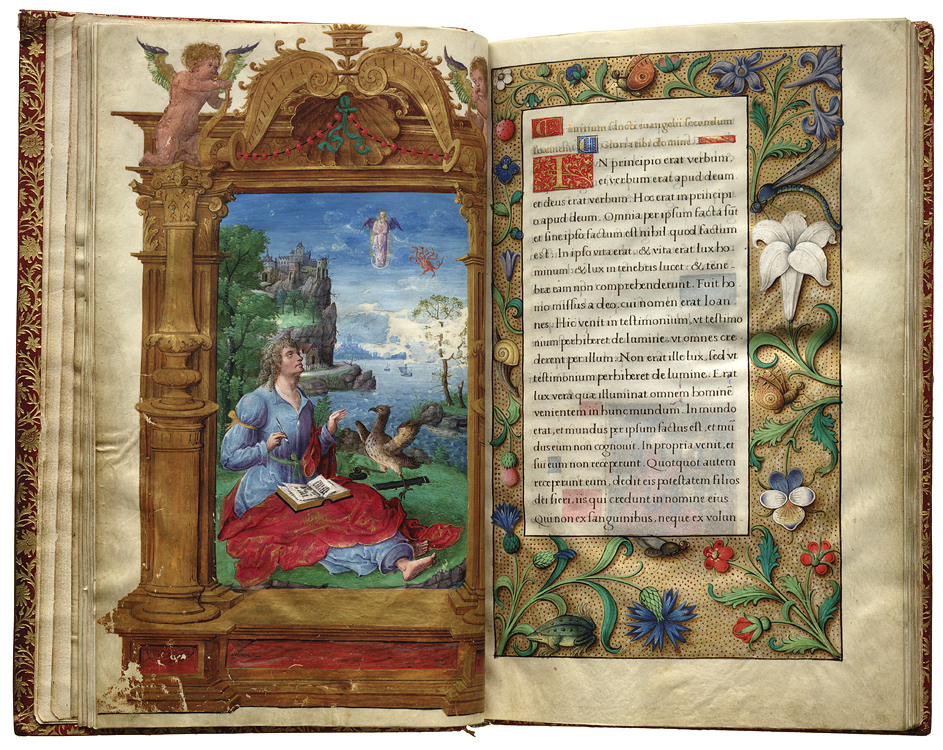 Initium sancti euangelii secundum
Ioannem. Gloria tibi domine.
IN principio erat verbum,
et verbum erat apud deum
et deus erat verbum. Hoc erat in principi
o apud deum. Omnia per ipsum facta sūt
et sine ipso factum est nihil quod factum
est. In ipso vita erat, & vita erat lux ho
minum: & lux in tenebris lucet: & tene-
bræ eam non comprehenderunt. Fuit ho
mo missus a deo, cui nomen erat Ioan
nes. Hic venit in testimonium, vt testimo
nium perhiberet de lumine, vt omnes cre
derent per illum. Non erat ille lux, sed vt
testimonium perhiberet de lumine. Erat
lux vera quæ illuminat omnem hominē
venientem in hunc mundum. In mundo
erat, et mundus per ipsum factus est, et mū
dus eum non cognouit. In propria venit, et
sui eum non receperunt. Quotquot autem
receperunt eum, dedit eis potestatem filios
dei fieri, iis qui credunt in nomine eius
Qui non ex sanguinibus, neque ex volun